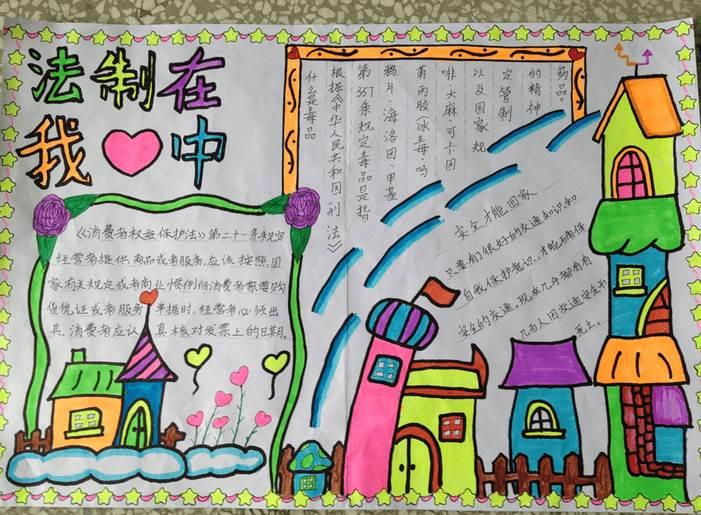 法制在
我 中
《消费者权益保护法》第二十一条规定
经营者提供商品或者服务应该按照国
家有关规定或者商业惯例向消费者索要购
货凭证或者服务单据时,经营者必须出
具。消费者应认真核对发票上的日期。
什么是毒品
根据《中华人民共和国刑法》
第357条规定毒品是指
鸦片、海洛因、甲基
苯丙胺(冰毒、吗
啡、大麻、可卡因
以及国家规
定管制
的精神
药品。
安全才能回家
只要有很好的交通知识和
自我保护意识,才能拥有保
安全的交通。现在几乎都有有
几百人因交通安全而
死亡。